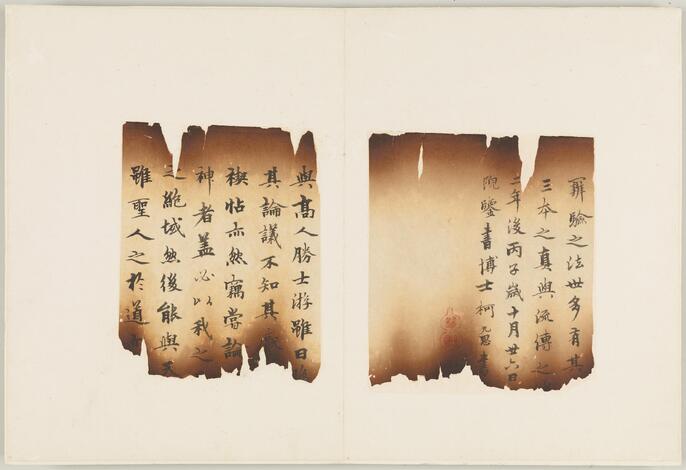 驗之法世多有其
三本之真與流傳之
二年後丙子歲十月廿六日
院鑒書博士柯九思書
與高人勝士游雖日
其論議不知其
禊帖亦然竊嘗論
神者蓋必以我之
之絕域然後能與天
雖聖人之於道